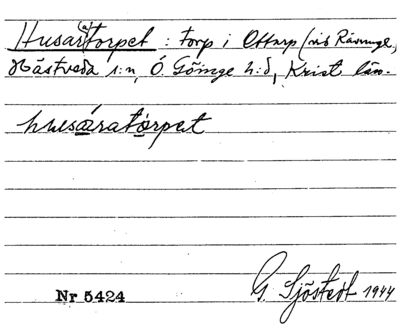 Husar(a)torpet : torp i Ottarp (vid Råvinge,
Hästveda s:n, Ö. Göinge h:d, Krist län.
husáratòrpet
G. Sjöstedt 1944
Nr 5424